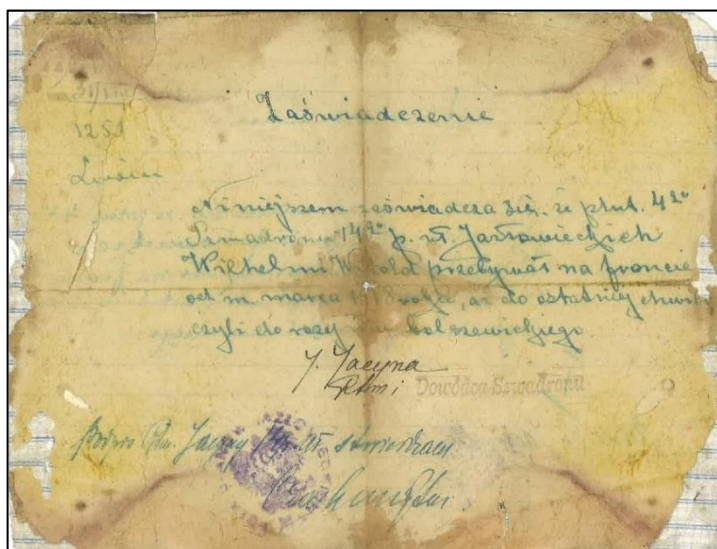 31/VIII
1251
Lwów
Zaświadczenie
Niniejszem zaświadcza się, że plut. 4go
14go p. uł. Jazłowieckich
Wilhelmi Witold przebywał na froncie
od m. marca 1918 roku, aż do ostatniej chwili
czyli do rozejmu bolszewickiego
J. Jacyna
Rtm
Dowódca Szwadronu
Podpis Rtm. Jacyny stwierdzam